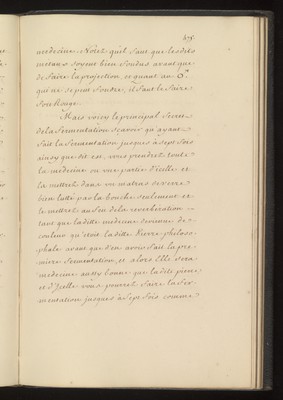 475.
medecine. Notez quil faut que lesdits
metaux soyent bien fondus avant que
de faire la projection, et quant au ♂
qui ne se peut fondre, il faut le faire
foie Rouge.
Mais voicy le principal Secret
de la fermentation scavoir qu'ayant
fait la fermentation jusques à sept fois
ainsy que dit est, vous prendrez toute
la medecine ou une partie d'icelle et
la mettrez dans un matras de verre
bien lutté par la bouche seulement et
le mettrez au feu de la reverberation
tant que ladite medecine devienne de
couleur qu'etoit ladite Pierre philoso-
phale avant que d'en avoir fait la pre-
miere fermentation, et alors Elle sera
medecine aussy bonne que ladite pierre
et d'Icelle vous pourrez faire la fer-
mentation jusques à Sept fois comme